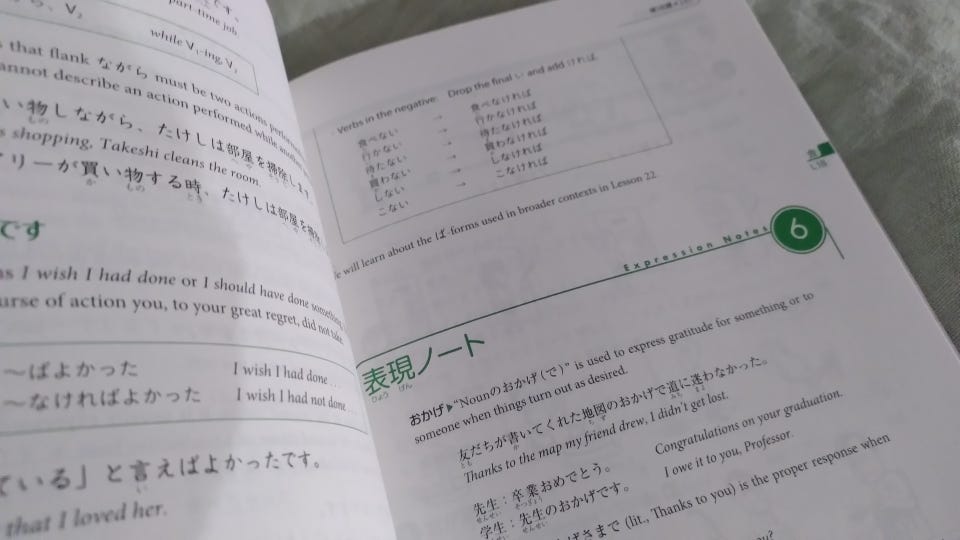 part-time job.
ら、V₂
while V₁-ing, V₂
that flank ながら must be two actions
cannot describe an action performed while
い物しながら、たけしは部屋を掃除します。
shopping, Takeshi cleans the room.
リーが買い物する時、たけしは部屋を
です
as I wish I had done or I should have done
course of action you, to your great regret, did not take.
～ばよかった I wish I had done . . .
～なければよかった I wish I had not done . . .
ている」と言えばよかったです。
that I loved her.
Verbs in the negative: Drop the final い and add ければ.
食べない → 食べなければ
行かない → 行かなければ
待たない → 待たなければ
買わない → 買わなければ
しない → しなければ
こない → こなければ
We will learn about the ば-forms used in broader contexts in Lesson 22.
会
L18
Expression Notes 6
表現ノート
ひょう げん
おかげ▶“Nounのおかげ(で)” is used to express gratitude for something or to
someone when things turn out as desired.
友だちが書いてくれた地図のおかげで道に迷わなかった。
とも か ちず みち まよ
Thanks to the map my friend drew, I didn't get lost.
先生：卒業おめでとう。 Congratulations on your graduation.
せんせい そつぎょう
学生：先生のおかげです。 I owe it to you, Professor.
せんせい
(lit., Thanks to you) is the proper response when